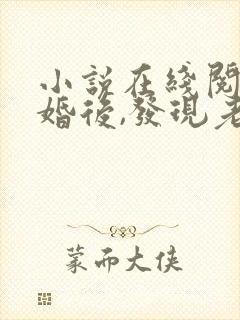 小説在綫閱
婚後,發現老
蒙而大俠